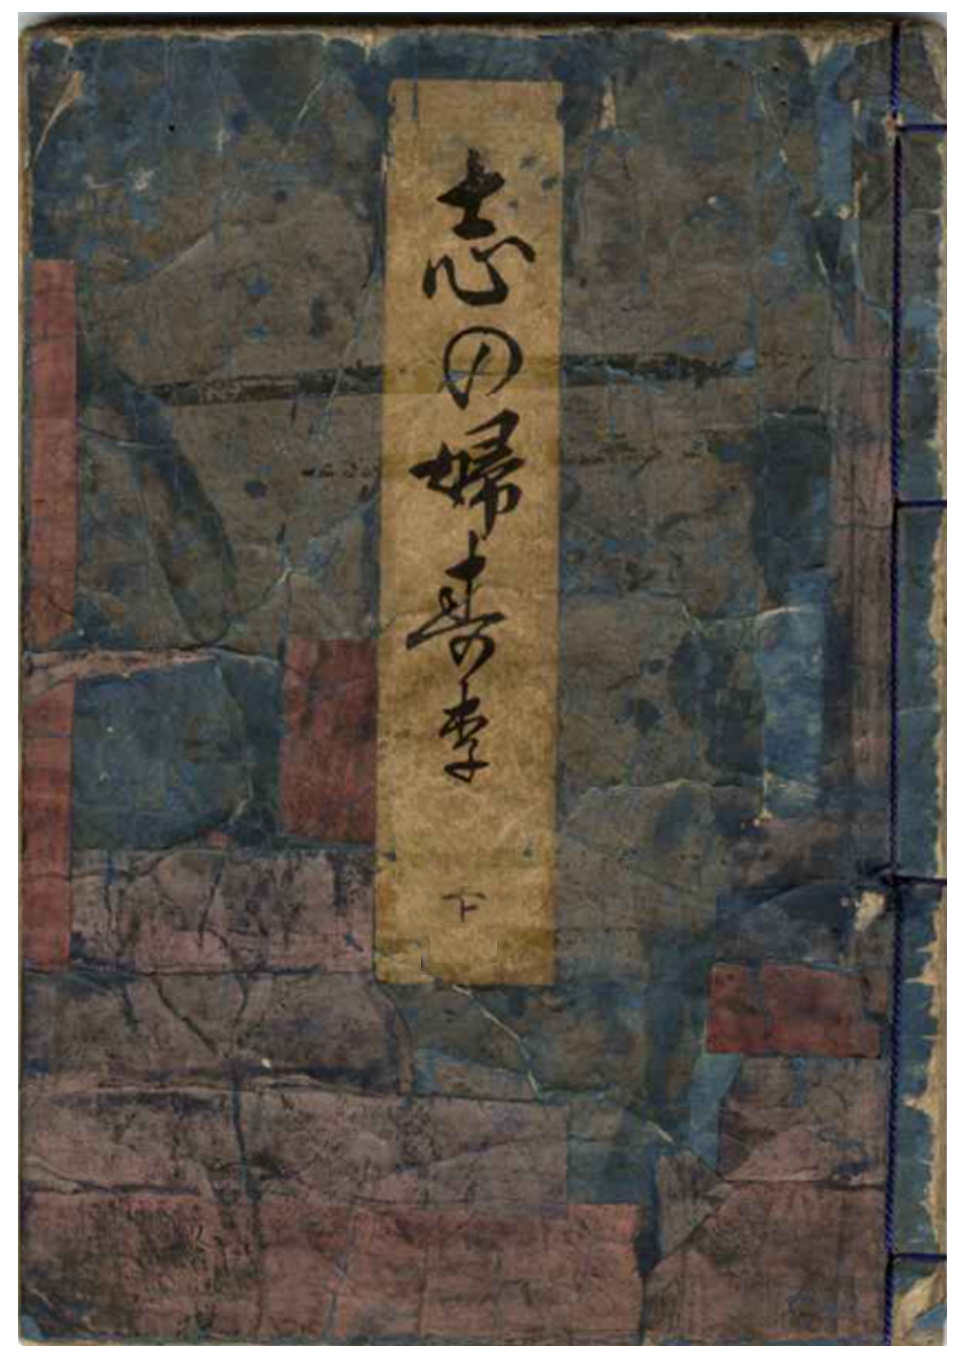 志の婦寿李
下